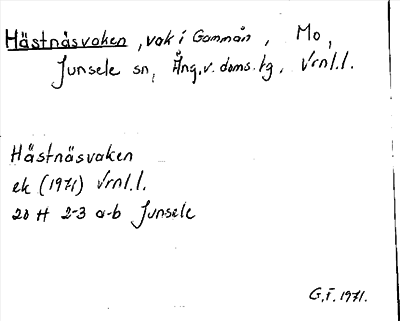 Hästnäsvaken, vak i Gammån, Mo,
Junsele sn, Ång.v. doms.tg. Vrnl.l.
Hästnäsvaken
ek (1971) Vrnl.l.
20 H 2-3 a-b Junsele
G.T. 1971.